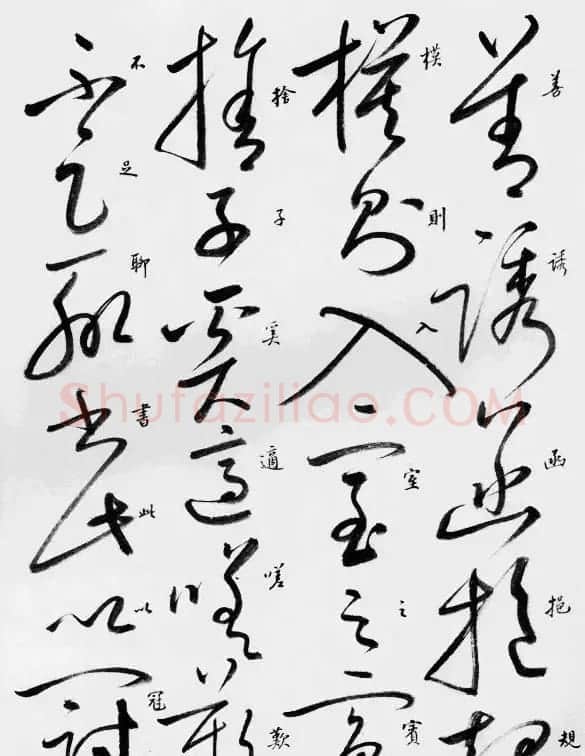 善誘函挹規
模則入室之賓
捨子奚適嗟歎
不足聊書此以冠
Shufaziliao.COM